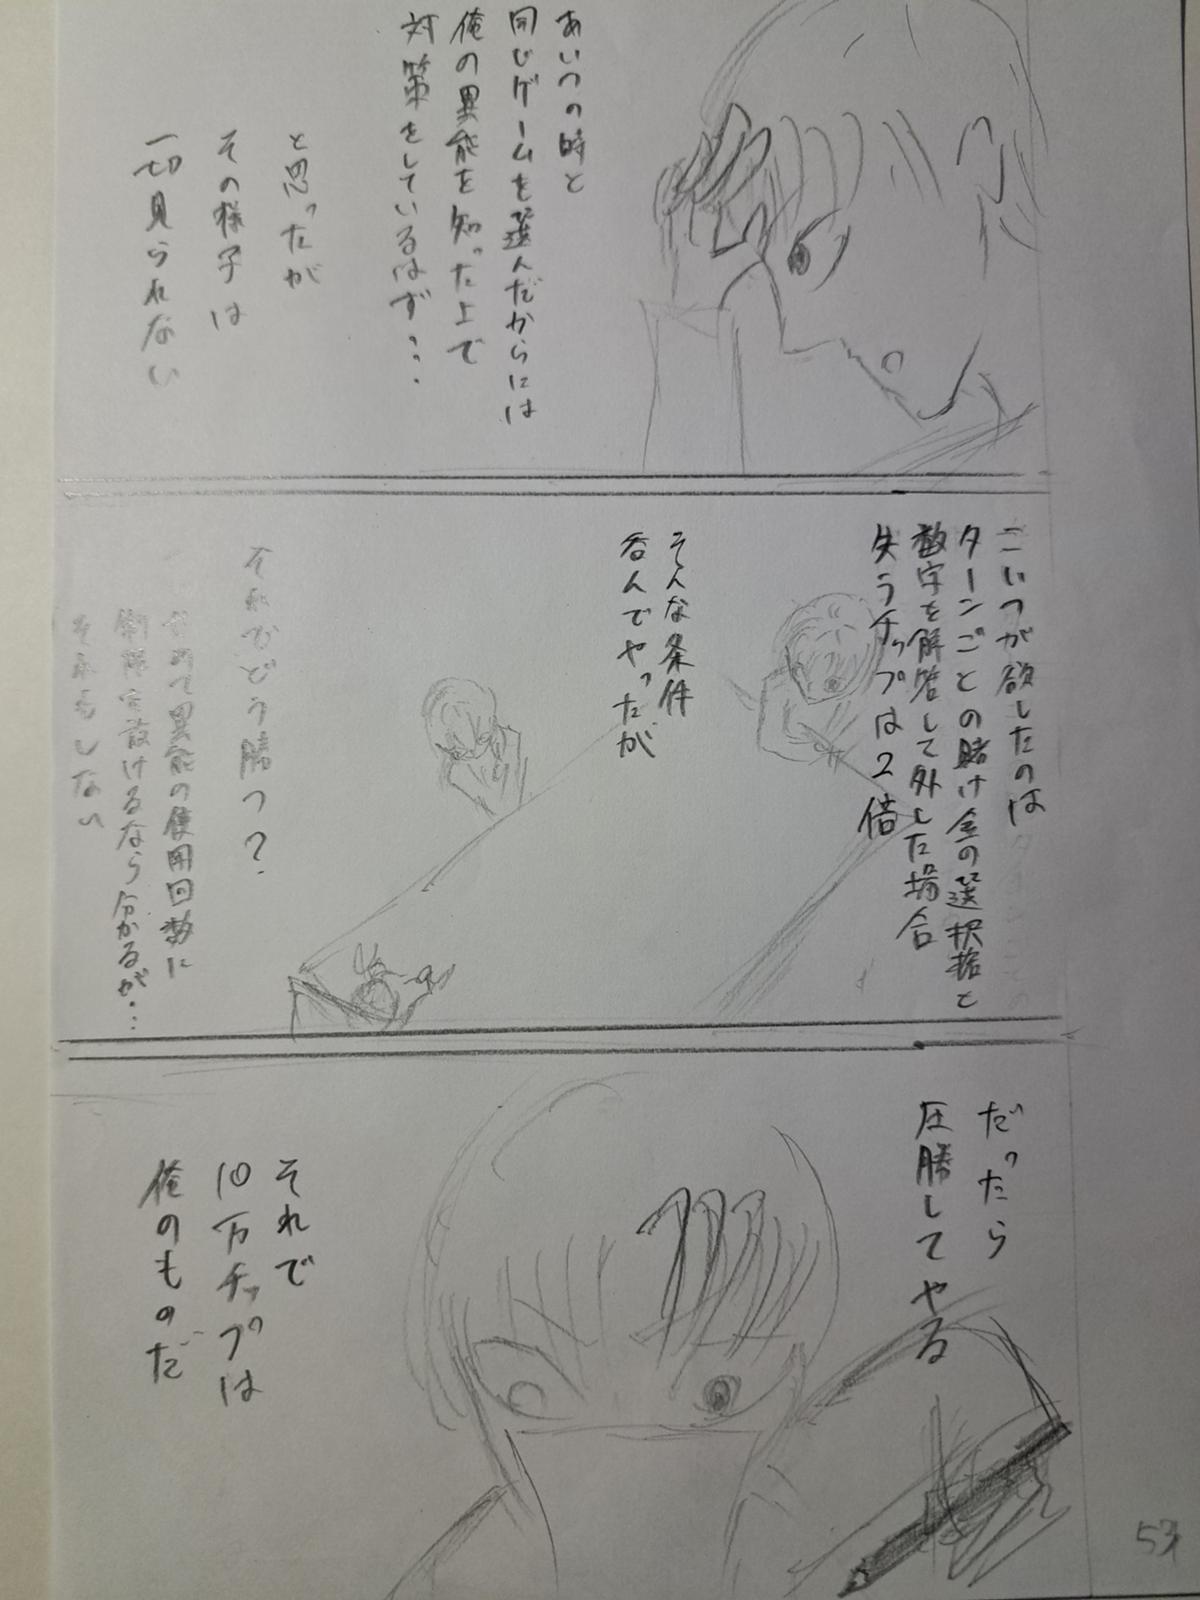 あいつの時と
同じゲームを選んだからには
俺の異能を知った上で
対策をしているはず・・・
と思ったが
その様子は
一切見られない
こいつが欲したのは
ターンごとの賭け金の選択権と
数字を解答して外した場合
失うチップは2倍
そんな条件
呑んでやったが
それでどう勝つ?
せめて異能の使用回数に
制限を設けるなら分かるが・・・
それもしない
だったら
圧勝してやる
それで
10万チップは
俺のものだ
53